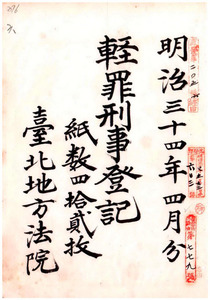 明治三十四年四月分
輕罪刑事登記
紙数四拾貳枚
臺北地方法院